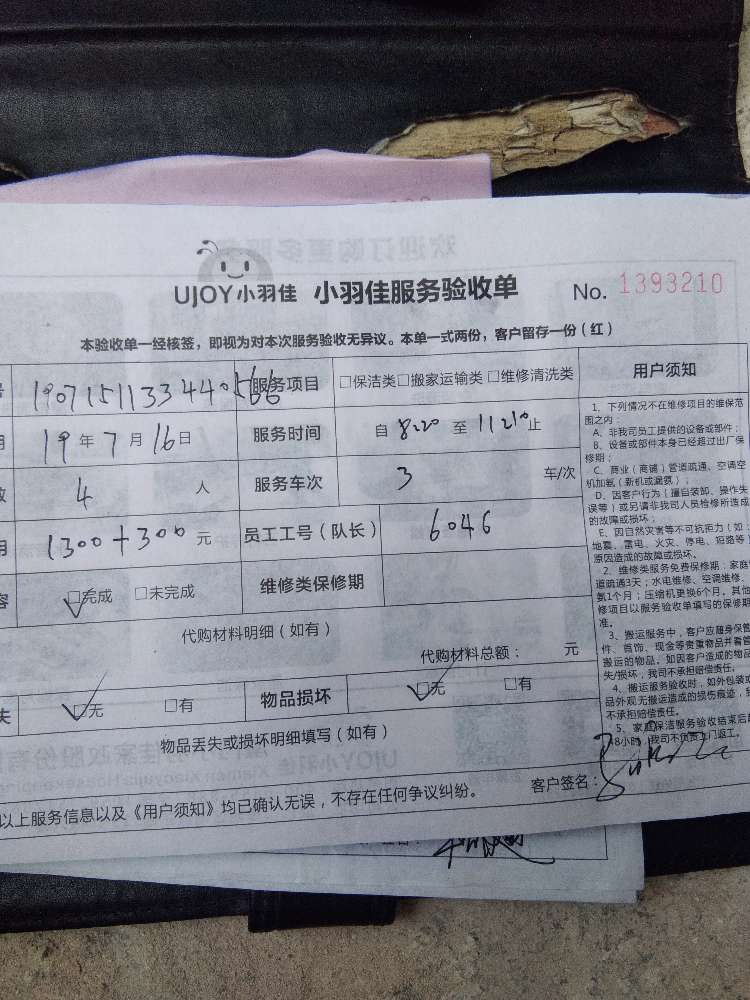 UJOY小羽佳 小羽佳服务验收单 No. 1393210
本验收单一经核签，即视为对本次服务验收无异议。本单一式两份，客户留存一份（红）
号 19071511334440566 服务项目 □保洁类□搬家运输类□维修清洗类 用户须知
期 19年7月16日 服务时间 自8:20至11:20止
数 4人 服务车次 3 车/次
用 1300+300元 员工工号（队长） 6046
容 ☑完成 □未完成 维修类保修期
代购材料明细（如有）
代购材料总额： 元
失 ☑无 □有 物品损坏 ☑无 □有
物品丢失或损坏明细填写（如有）
以上服务信息以及《用户须知》均已确认无误，不存在任何争议纠纷。 客户签名：
1、下列情况不在维修项目的维保范
围之内：
A、非我司员工提供的设备或部件；
B、设备或部件本身已经超过出厂保
修期；
C、商业（商铺）管道疏通、空调空
机加氨（新机或漏氨）；
D、因客户行为（擅自装卸、操作失
误等）或另请非我司人员检修所造成
的故障或损坏；
E、因自然灾害等不可抗拒力（如：
地震、雷电、火灾、停电、短路等）
原因造成的故障或损坏。
2、维修类服务免费保修期：家庭
道疏通3天；水电维修、空调维修、
氨1个月；压缩机更换6个月。其他
修项目以服务验收单填写的保修期
准。
3、搬运服务中，客户应随身保管
件、首饰、现金等贵重物品并看管
搬运的物品。如因客户造成的物品
失/损坏，我司不承担赔偿责任。
4、搬运服务验收时，如外包装或
品外观无搬运造成的损伤痕迹，
不承担赔偿责任。
5、家庭保洁服务验收结束后
48小时，我司不负责上门返工。